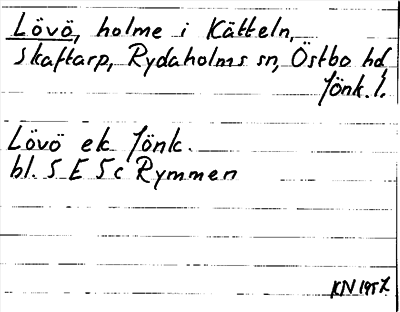 Lövö, holme i Kätteln,
Skaftarp, Rydaholms sn, Östbo hd,
Jönk. l.
Lövö ek Jönk.
bl. 5 E 5 c Rymmen
KN 1957